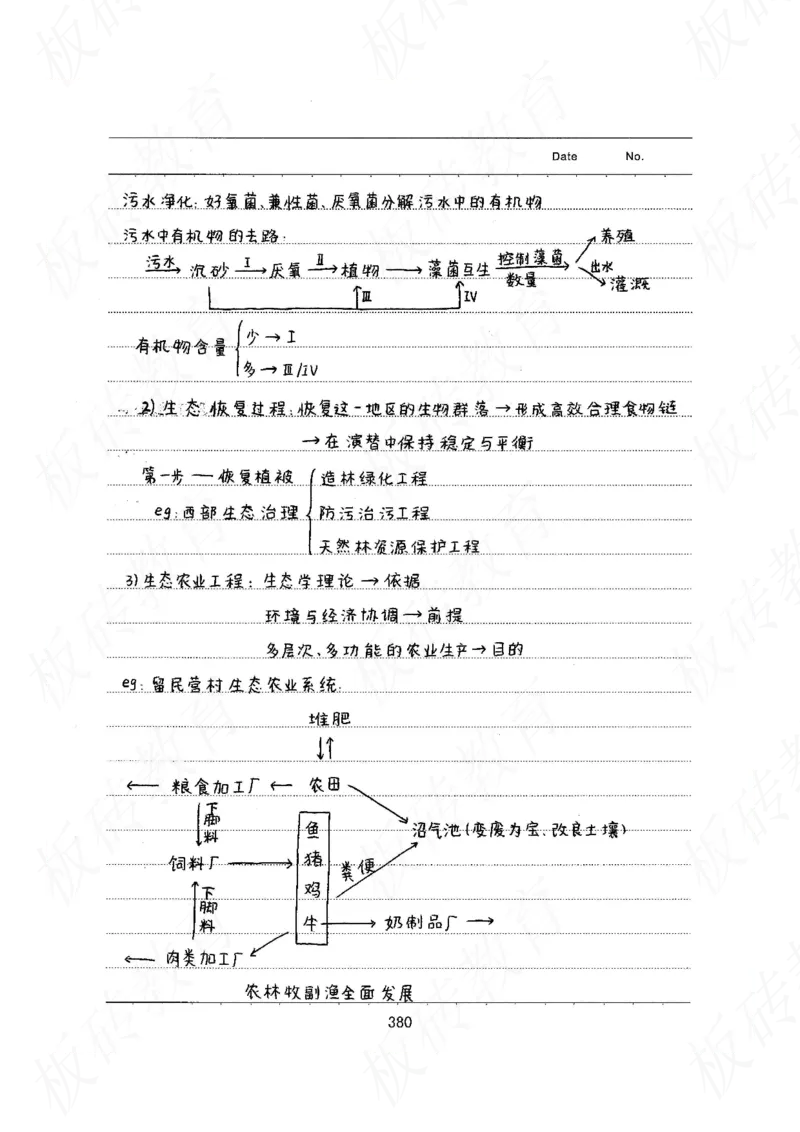 Date No.
污水净化:好氧菌、兼性菌、厌氧菌分解污水中的有机物
污水中有机物的去路:
污水→沉砂 Ⅰ→厌氧 Ⅱ→植物→藻菌互生 控制藻菌数量→养殖
出水
灌溉
Ⅲ Ⅳ
有机物含量{少→Ⅰ
多→Ⅲ/Ⅳ
2)生态恢复过程:恢复这一地区的生物群落→形成高效合理食物链
→在演替中保持稳定与平衡
第一步——恢复植被{造林绿化工程
eg:西部生态治理 防污治污工程
天然林资源保护工程
3)生态农业工程:生态学理论→依据
环境与经济协调→前提
多层次、多功能的农业生产→目的
eg:留民营村生态农业系统:
堆肥
↓↑
←粮食加工厂←农田
下脚料
鱼 沼气池(变废为宝、改良土壤)
饲料厂→猪 粪便
鸡
下脚料
牛→奶制品厂→
←肉类加工厂
农林牧副渔全面发展
380
板砖教育